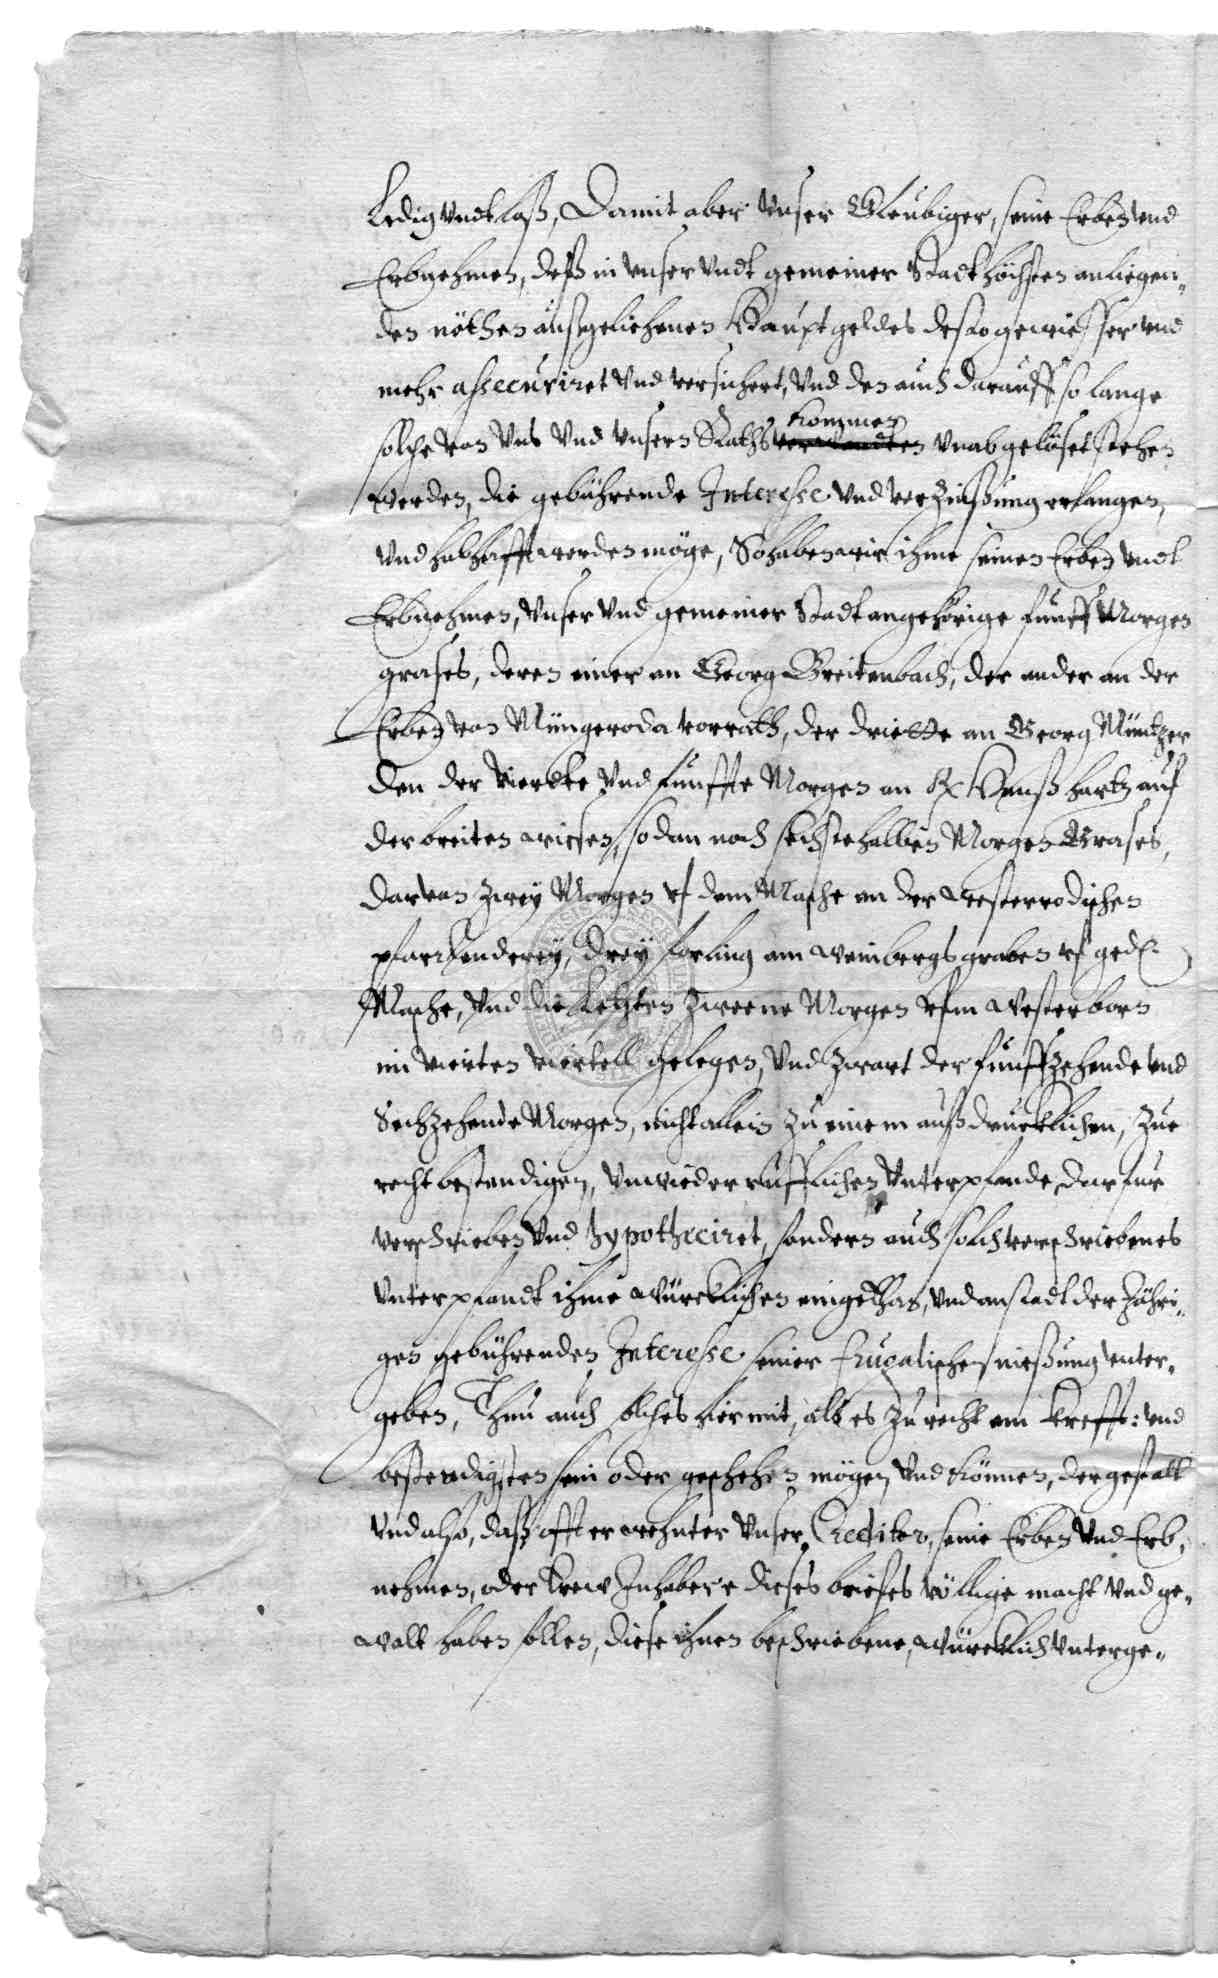 Ledig undt loß, Damit aber unser Gleubiger, seine Erben und
Erbnehmen, deß in unser undt gemeiner Stadt höchsten anliegen-
den nöthen außgeliehenen Hauptgeldes desto gewisser und
mehr assecuriret und versichert, und den auch darauff so lange
kommen
solche von uns und unsern Raths verwandten unabgelöset stehen
werden, die gebührende Interesse und verzinßung erlangen,
und habhafft werden möge, So haben wir ihme seinen Erben undt
Erbnehmen, unser und gemeiner Stadt angehörige fünff Morgen
grases, deren einer an Georg Breitenbach, der ander an der
Erben von Müngeroda vorrath, der dritte an Georg Müntzer
den der vierdte und fünffte Morgen an Hanß Hartz auf
der breiten wiesen, so dan noch sechstehalben Morgen Grases,
darvon zwey Morgen uf dem Masche an der Westerrodischen
pfarlenderey, drey forling am weinbergs graben uf ged.
Masche, und die Letzten zweene Morgen ufm Westerborn
im vierten viertell gelegen, und zwart der funffzehende und
Sechzehende Morgen, nicht allein zu einem außdrucklichen, zue
recht bestendigen, unwiederrufflichen unterpfande darfur
verschrieben und hypotheciret, sondern auch solch verschriebenes
unterpfandt ihme würcklichen eingethan, und anstadt der Jähri-
gen gebührenden Interesse seiner frucalischen nießung unter-
geben, Thun auch solches hiermit, alß es zu recht am krefft: und
bestendigsten sein oder geschehen mögen und können, dergestalt
und also, daß offt erwehnter unser Creditor, seine Erben und Erb-
nehmen, oder trew Inhabere dieses briefes völlige macht und ge-
walt haben sollen, diese ihnen beschriebene, würcklich unterge-